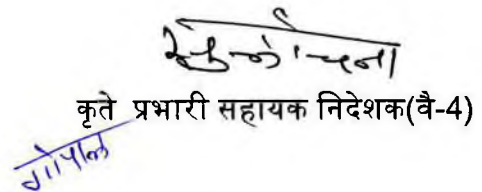 सुलोचना
कृते प्रभारी सहायक निदेशक(वै-4)
गोपाल